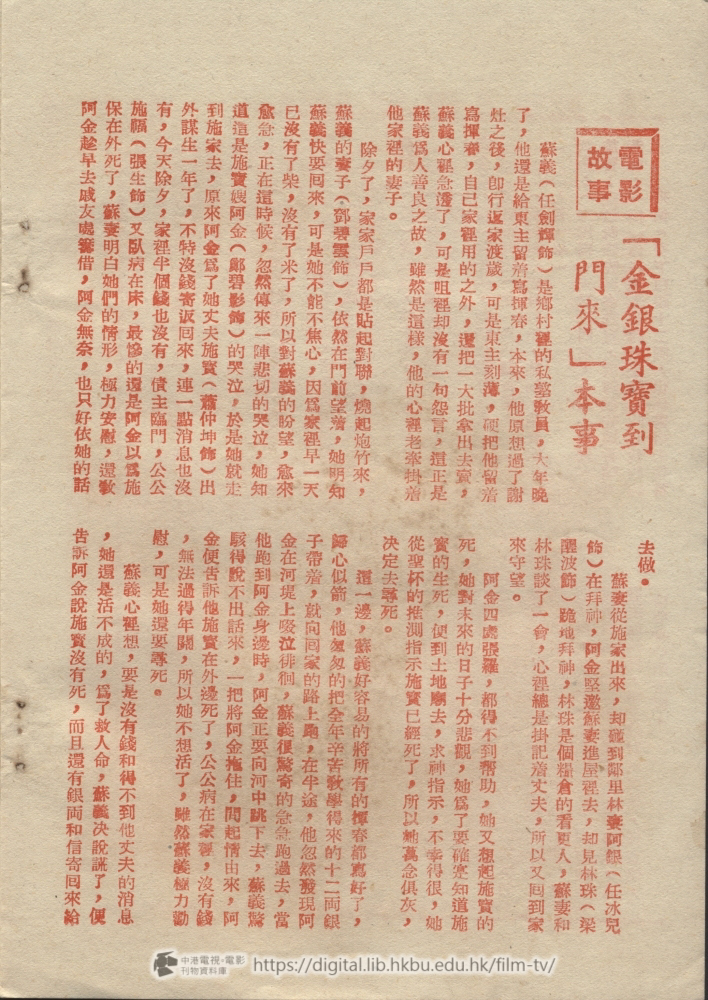 電影
故事
「金銀珠寶到
門來」本事
蘇義（任劍輝飾）是鄉村裡的私塾教員，大年晚
了，他還是給東主留着寫揮春，本來，他原想過了謝
灶之後，卽行返家渡歲，可是東主刻薄，硬把他留着
寫揮春，自己家裡用的之外，還把一大批拿出去賣，
蘇義心裡急透了，可是咀裡却沒有一句怨言，這正是
蘇義爲人善良之故，雖然是這樣，他的心裡老牽掛着
他家裡的妻子。
除夕了，家家戶戶都是貼起對聯，燒起炮竹來，
蘇義的妻子（鄧碧雲飾），依然在門前望着，她明知
蘇義快要囘來，可是她不能不焦心，因爲家裡早一天
已沒有了柴，沒有了米了，所以對蘇義的盼望，愈來
愈急，正在這時候，忽然傳來一陣悲切的哭泣，她知
道這是施寶嫂阿金（鄭碧影飾）的哭泣，於是她就走
到施家去，原來阿金爲了她丈夫施寶（蕭仲坤飾）出
外謀生一年了，不特沒錢寄返囘來，連一點消息也沒
有，今天除夕，家裡半個錢也沒有，債主臨門，公公
施福（張生飾）又臥病在床，最慘的還是阿金以爲施
保在外死了，蘇妻明白她們的情形，極力安慰，還敎
阿金趁早去戚友處籌借，阿金無奈，也只好依她的話
去做。
蘇妻從施家出來，却碰到鄰里林妻阿銀（任冰兒
飾）在拜神，阿金堅邀蘇妻進屋裡去，却見林珠（梁
醒波飾）跪地拜神，林珠是個糧倉的看更人，蘇妻和
林珠談了一會，心裡總是掛記着丈夫，所以又囘到家
來守望。
阿金四處張羅，都得不到幫助，她又想起施寶的
死，她對未來的日子十分悲觀，她爲了要確實知道施
寶的生死，便到土地廟去，求神指示，不幸得很，她
從聖杯的推測指示施寶已經死了，所以她萬念俱灰，
决定去尋死。
這一邊，蘇義好容易的將所有的揮春都寫好了，
歸心似箭，他匆匆的把全年辛苦敎學得來的十二両銀
子帶着，就向囘家的路上跑，在半途，他忽然發現阿
金在河堤上啜泣徘徊，蘇義很驚奇的急急跑過去，當
他跑到阿金身邊時，阿金正要向河中跳下去，蘇義驚
駭得說不出話來，一把將阿金拖住，問起情由來，阿
金便吿訴他施寶在外邊死了，公公病在家裡，沒有錢
，無法過得年關，所以她不想活了，雖然蘇義極力勸
慰，可是她還要尋死。
蘇義心裡想，要是沒有錢和得不到他丈夫的消息
，她還是活不成的，爲了救人命，蘇義决說謊了，便
吿訴阿金說施寶沒有死，而且還有銀両和信寄囘來給
中港電視·電影
刊物資料庫
https://digital.lib.hkbu.edu.hk/film-tv/